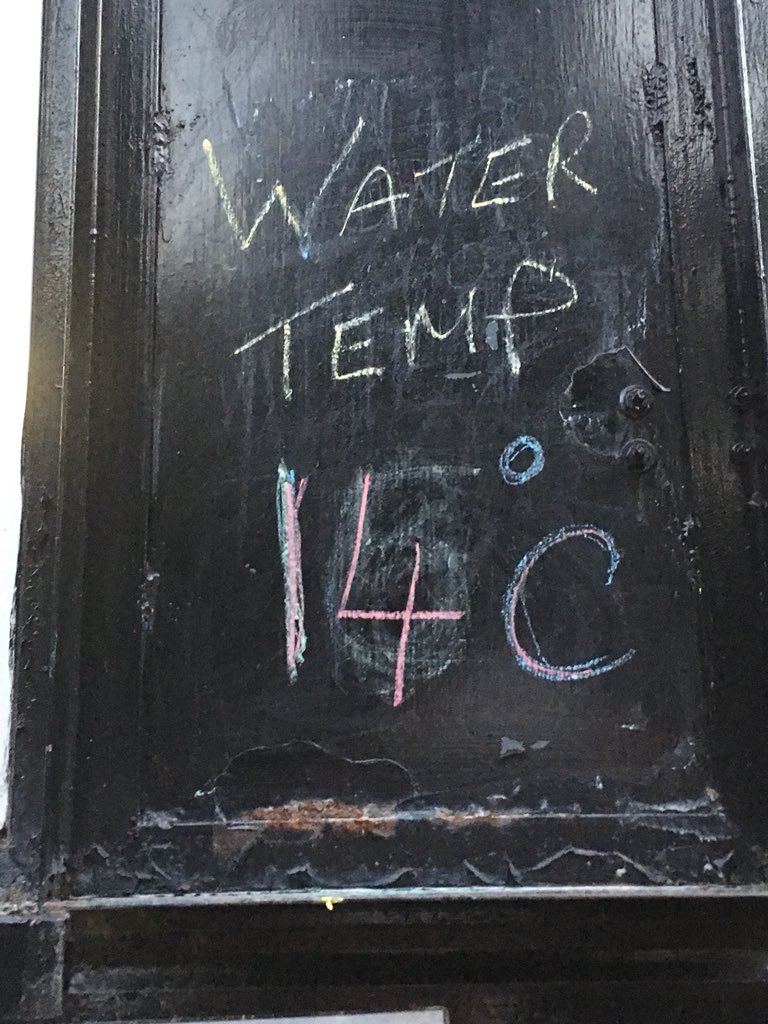 WATER
TEMP
14°C